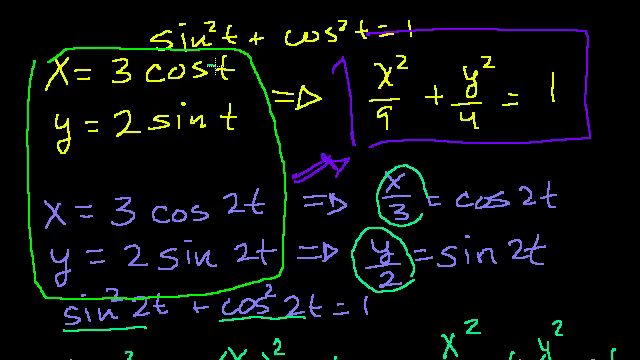 sin²t + cos²t = 1
x = 3 cos t
y = 2 sin t
⇒ x²/9 + y²/4 = 1
x = 3 cos 2t ⇒ x/3 = cos 2t
y = 2 sin 2t ⇒ y/2 = sin 2t
sin²2t + cos²2t = 1